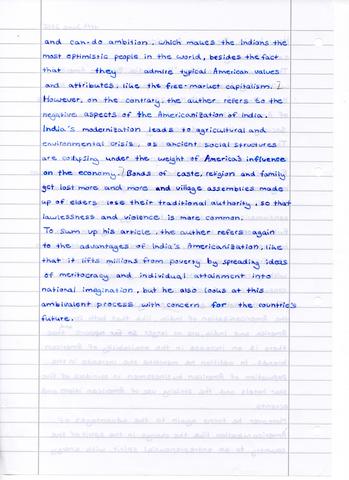 and can-do ambition, which makes the Indians the
most optimistic people in the world, besides the fact
that they admire typical American values
and attributes, like the free-market capitalism.
However, on the contrary, the author refers to the
negative aspects of the Americanization of India.
India's modernization leads to agricultural and
environmental crisis, as ancient social structures
are collapsing under the weight of America's influence
on the economy. Bonds of caste, religion and family
get lost more and more and village assemblies made
up of elders lose their traditional authority, so that
lawlessness and violence is more common.
To sum up his article, the author refers again
to the advantages of India's Americanization, like
that it lifts millions from poverty by spreading ideas
of meritocracy and individual attainment into
national imagination, but he also looks at this
ambivalent process with concern for the countrie's
future.